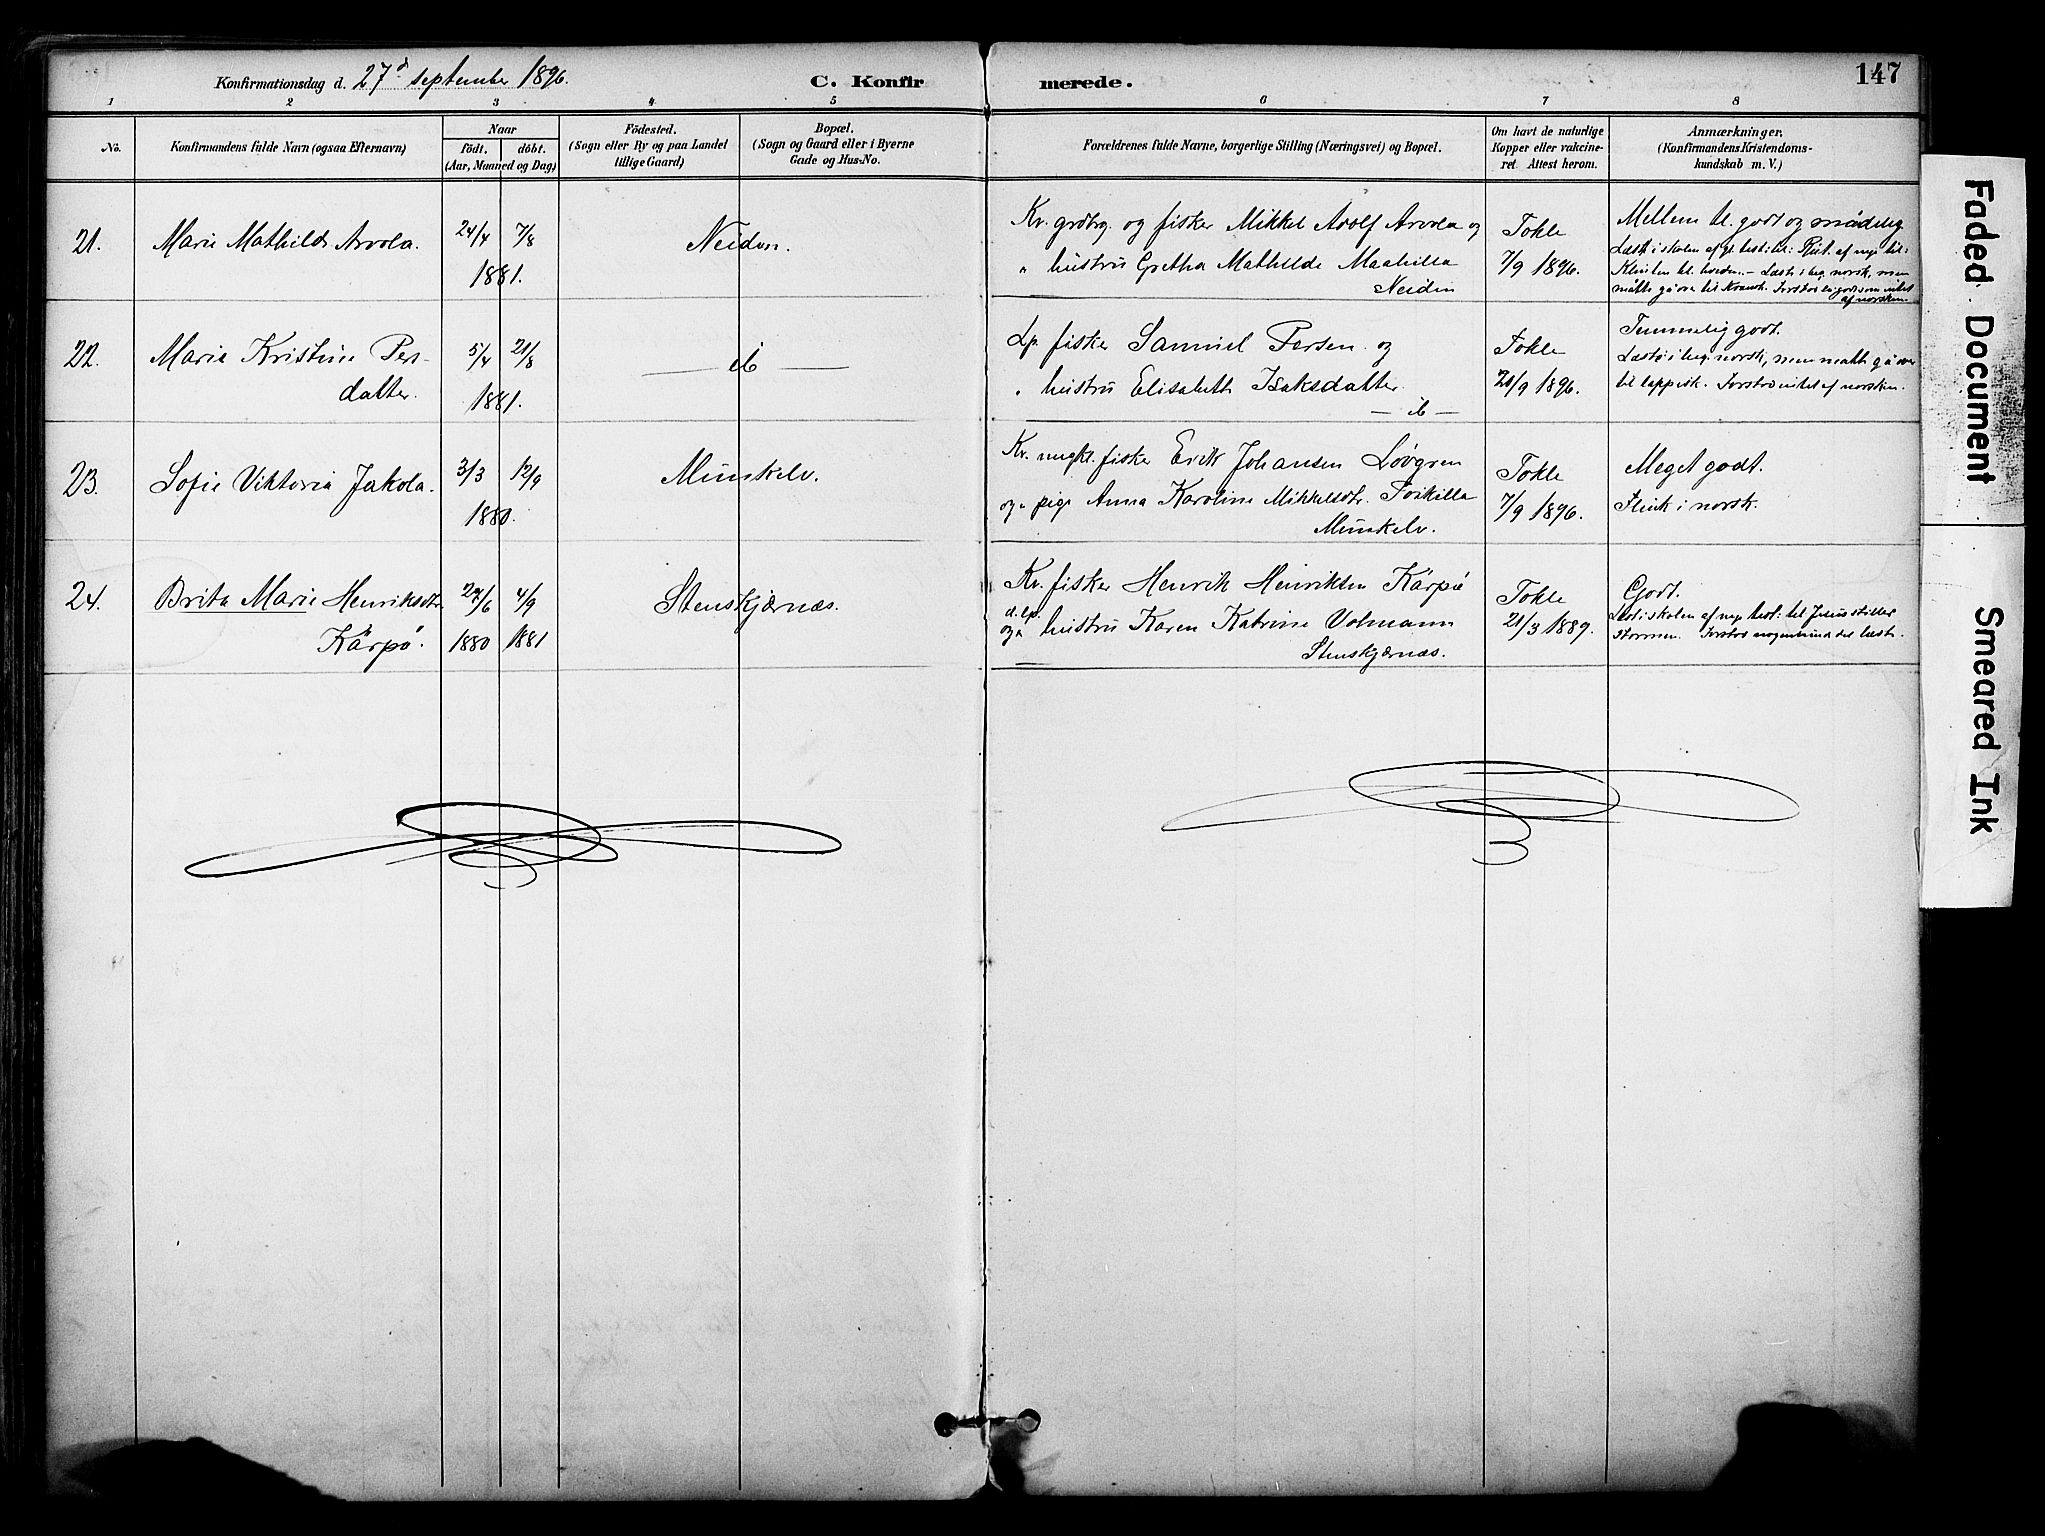 Konfirmationsdag d. 27d september 1896.
C. Konfirmerede.
147
1 2 3 4 5 6 7 8
No.
Konfirmandens fulde Navn (ogsaa Efternavn)
Naar
födt. döbt.
(Aar, Maaned og Dag)
Födested.
(Sogn eller By og paa Landet
tillige Gaard)
Bopæl.
(Sogn og Gaard eller i Byerne
Gade og Hus-No.
Forældrenes fulde Navne, borgerlige Stilling (Næringsvei) og Bopæl.
Om havt de naturlige
Kopper eller vakcine-
ret Attest herom.
Anmærkninger.
(Konfirmandens Kristendoms-
kundskab m. V.)
21.
Marie Mathilde Arvola.
24/4 7/8
1881.
Neiden.
Kv. grdbrg. og fisker Mikkel Adolf Arvola og
" hustru Gretha Mathilde Maahilla
Neiden
Tokle
7/9 1896.
Mellem tl. godt og mådelig
Læste i skolen af gl. test.
af norsken
22.
Marie Kristine Pers-
datter.
5/4 21/8
1881.
— ib —
Lp. fisker Samuel Persen og
" hustru Elisabeth Isaksdatter.
— ib —
Tokle
21/9 1896.
Temmelig godt.
Læste i beg. norsk, men måtte gå over
til lappisk. Forstod intet af norsken.
23.
Sofie Viktoria Jakola.
3/3 12/9
1880.
Munkelv.
Kv. ungkl. fisker Erik Johansen Lövgren
og " pige Anna Karoline Mikkelsdtr. Toikilla
Munkelv.
Tokle
7/9 1896.
Meget godt.
Flink i norsk.
24.
Brita Marie Henriksdtr.
Kärpö.
27/6 4/9
1880 1881
Stenskjærnæs.
Kv. fisker Henrik Henriksen Kärpö
d. lp.
og " hustru Karen Katrine Volmann
Stenskjærnæs.
Tokle
21/3 1889.
Godt.
Læste i skolen af nye test: til Jesus stiller
stormen. Forstod nogenlunde det læste.
Faded Document
Smeared Ink